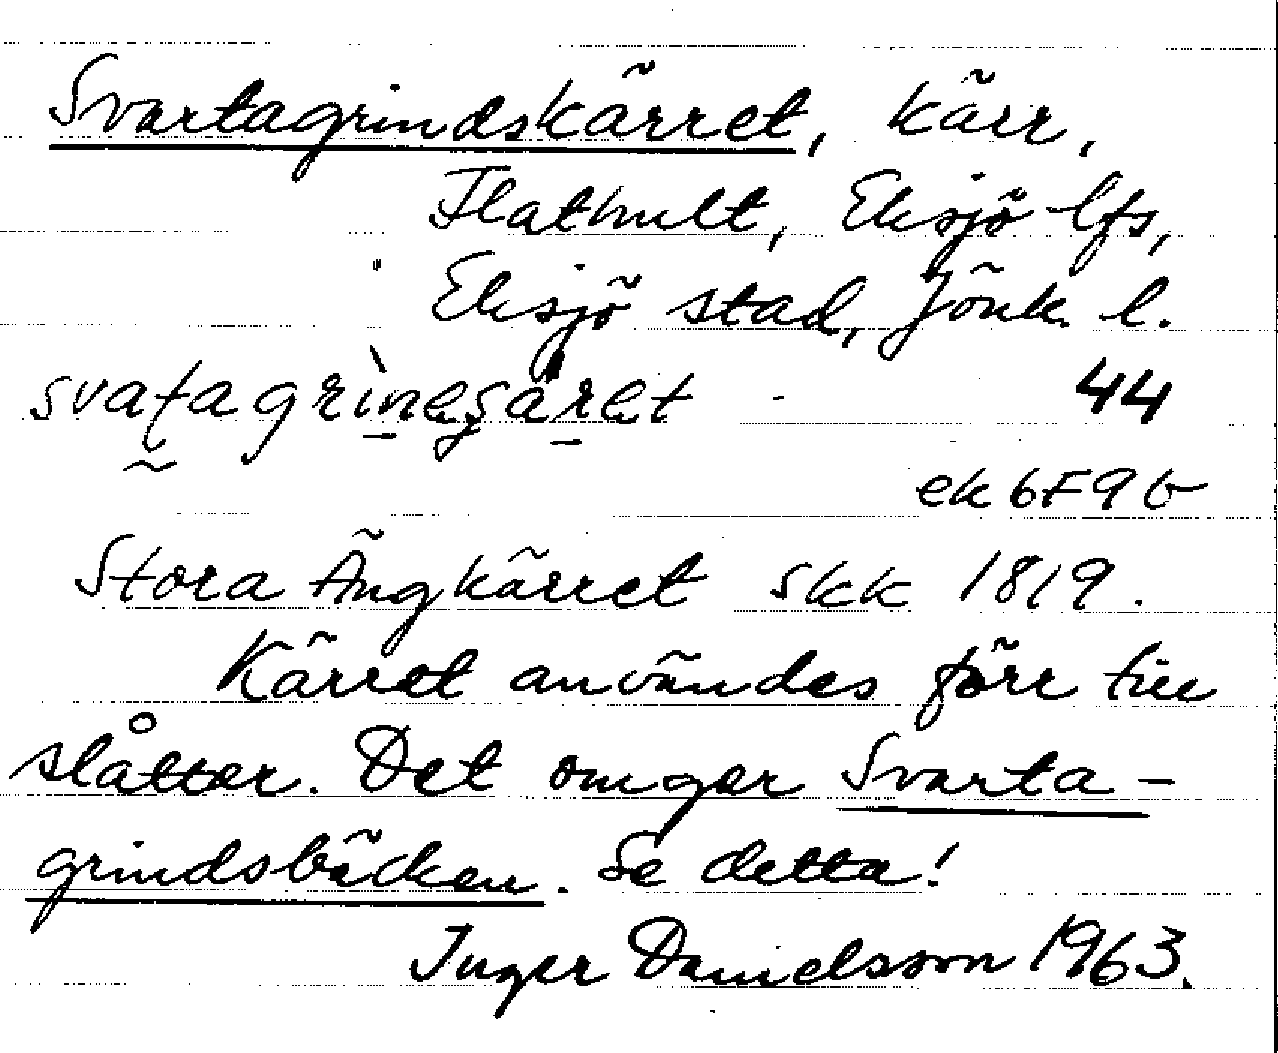 Svartagrindskärret, kärr,
Flathult, Eksjö lfs,
Eksjö stad, Jönk. l.
44
ek 6F9b
Stora Ängkärret skk 1819.
Kärret användes förr till
slåtter. Det omger Svarta-
grindsbäcken. Se detta!
Inger Danielsson 1963.